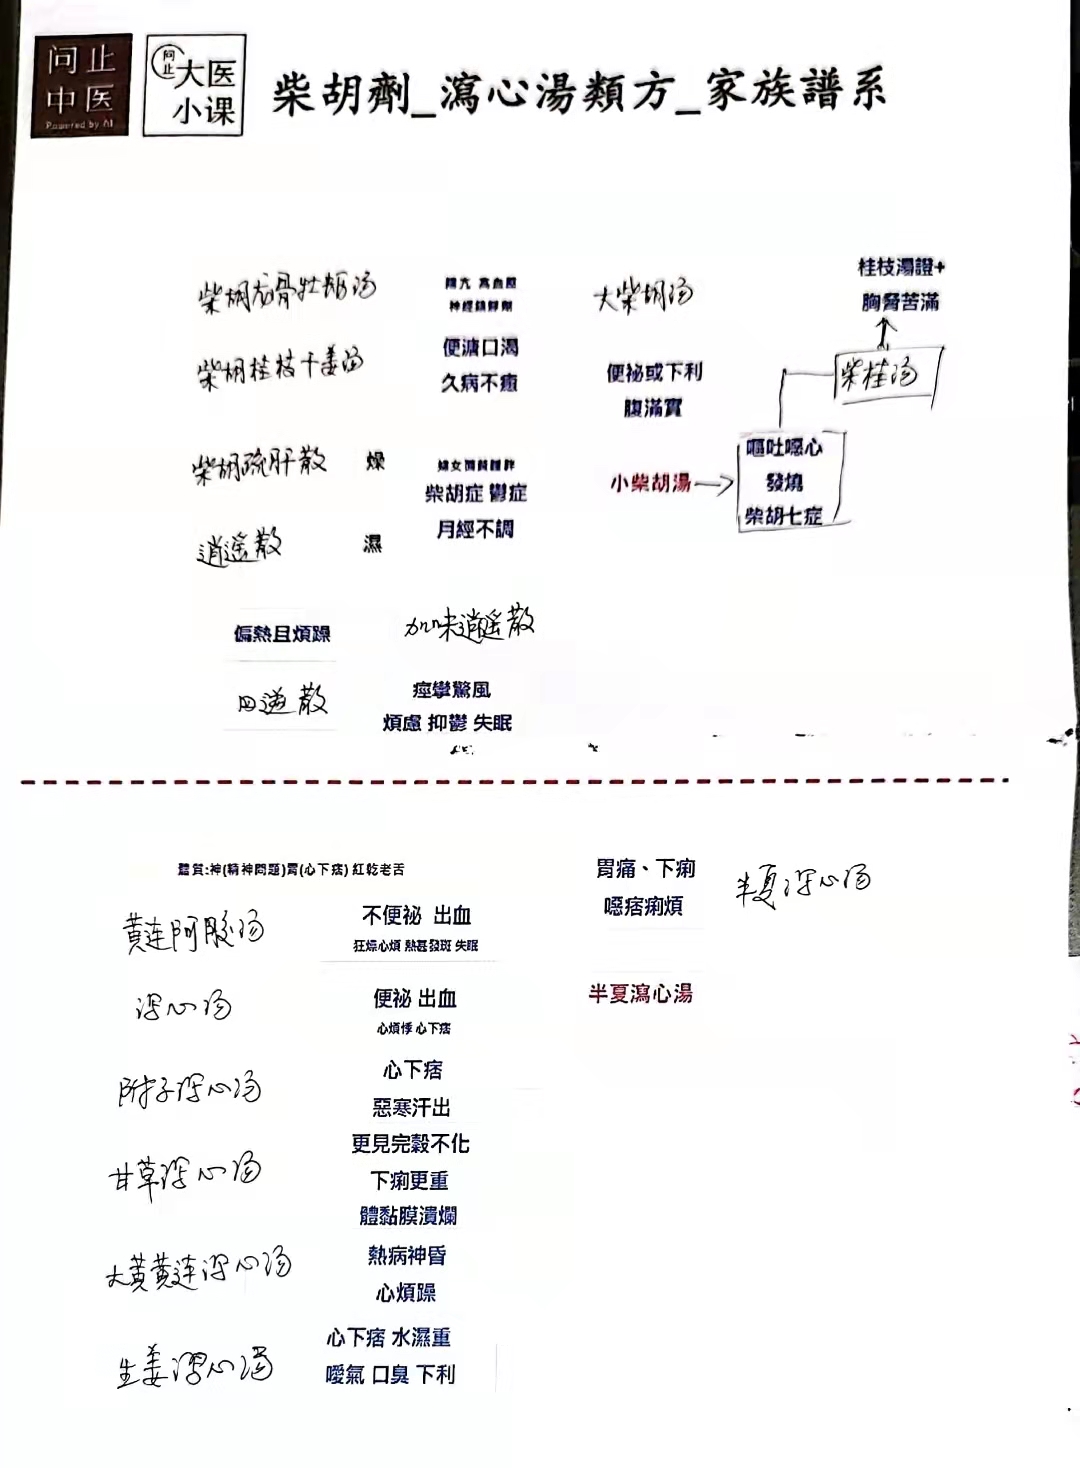 问止
中医
Powered by AI
问止
大医
小课
柴胡劑_瀉心湯類方_家族譜系
柴胡龙骨牡蛎汤
陽亢 高血壓
神經鎮靜劑
柴胡桂枝干姜汤
便溏口渴
久病不癒
大柴胡汤
便祕或下利
腹滿實
桂枝湯證+
胸脅苦滿
柴桂汤
小柴胡湯
嘔吐噁心
發燒
柴胡七症
柴胡疏肝散
燥
柴胡症 鬱症
月經不調
逍遥散
濕
偏熱且煩躁
加味逍遥散
四逆散
痙攣驚風
煩慮 抑鬱 失眠
體質:神(精神問題)胃(心下痞) 紅乾老舌
黄连阿胶汤
不便祕 出血
狂燥心煩 熱甚發斑 失眠
泻心汤
便祕 出血
心煩悸 心下痞
附子泻心汤
心下痞
惡寒汗出
甘草泻心汤
更見完穀不化
下痢更重
體黏膜潰爛
大黄黄连泻心汤
熱病神昏
心煩躁
生姜泻心汤
心下痞 水濕重
噯氣 口臭 下利
胃痛、下痢
噁痞痢煩
半夏泻心汤
半夏瀉心湯